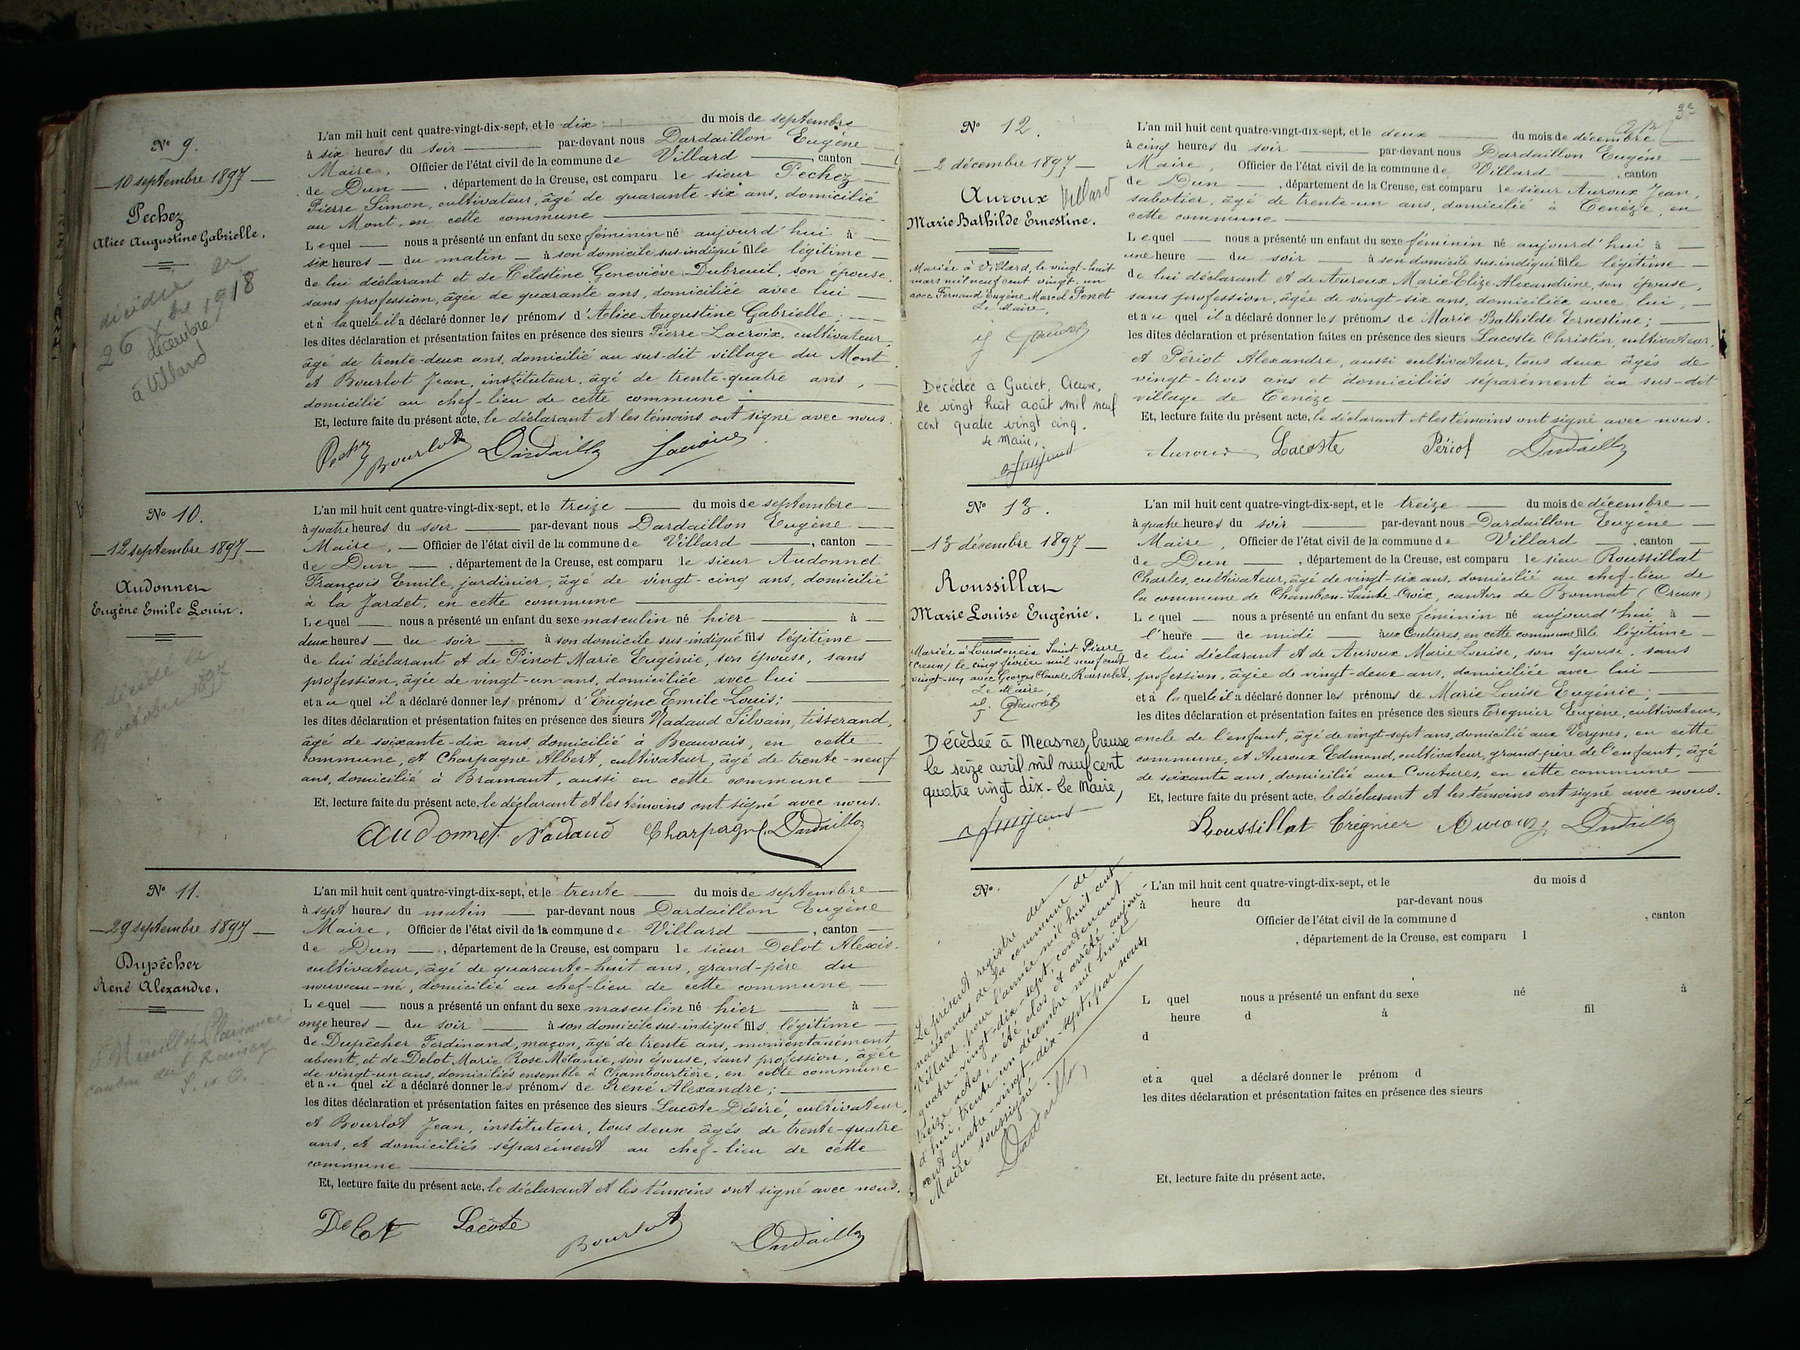 N° 9.
10 septembre 1897
Pechez
Alice Augustine Gabrielle.
décédée
26 Xbre 1918
décembre
à Villard
L'an mil huit cent quatre-vingt-dix-sept, et le dix du mois de septembre
à six heures du soir par-devant nous Dardaillon Eugène
Maire, Officier de l'état civil de la commune de Villard, canton
de Dun, département de la Creuse, est comparu le sieur Pechez
Pierre Simon, cultivateur, âgé de quarante-six ans, domicilié
au Mont, en cette commune
Lequel nous a présenté un enfant du sexe féminin né aujourd'hui à
six heures du matin à son domicile sus-indiqué fille légitime
de lui déclarant et de Célestine Geneviève Dubreuil, son épouse,
sans profession, âgée de quarante ans, domiciliée avec lui
et à laquelle il a déclaré donner les prénoms d'Alice Augustine Gabrielle;
les dites déclaration et présentation faites en présence des sieurs Pierre Lacroix, cultivateur,
âgé de trente-deux ans, domicilié au sus-dit village du Mont
et Bourlot Jean, instituteur, âgé de trente-quatre ans,
domicilié au chef-lieu de cette commune
Et, lecture faite du présent acte, le déclarant et les témoins ont signé avec nous.
Pechez Bourlot Dardaillon Lacroix
N° 10.
12 septembre 1897
Audonnet
Eugène Emile Louis.
décédé le
octobre 1897
L'an mil huit cent quatre-vingt-dix-sept, et le treize du mois de septembre
à quatre heures du soir par-devant nous Dardaillon Eugène
Maire, Officier de l'état civil de la commune de Villard, canton
de Dun, département de la Creuse, est comparu le sieur Audonnet
François Emile, jardinier, âgé de vingt-cinq ans, domicilié
à la Jardet, en cette commune
Lequel nous a présenté un enfant du sexe masculin né hier à
deux heures du soir à son domicile sus-indiqué fils légitime
de lui déclarant et de Pinot Marie Eugénie, son épouse, sans
profession, âgée de vingt-un ans, domiciliée avec lui
et au quel il a déclaré donner les prénoms d'Eugène Emile Louis;
les dites déclaration et présentation faites en présence des sieurs Nadaud Silvain, tisserand,
âgé de soixante-dix ans domicilié à Beauvais, en cette
commune, et Charpagne Albert, cultivateur, âgé de trente-neuf
ans, domicilié à Bramant, aussi en cette commune
Et, lecture faite du présent acte, le déclarant et les témoins ont signé avec nous.
Audonnet Nadaud Charpagne Dardaillon
N° 11.
29 septembre 1897
Dupêcher
René Alexandre.
à Neuilly Plaisance
canton du Raincy
S. et O.
L'an mil huit cent quatre-vingt-dix-sept, et le trente du mois de septembre
à sept heures du matin par-devant nous Dardaillon Eugène
Maire, Officier de l'état civil de la commune de Villard, canton
de Dun, département de la Creuse, est comparu le sieur Delot Alexis.
cultivateur, âgé de quarante-huit ans, grand-père du
nouveau-né, domicilié au chef-lieu de cette commune
Lequel nous a présenté un enfant du sexe masculin né hier à
onze heures du soir à son domicile sus-indiqué fils légitime
de Dupêcher Ferdinand, maçon, âgé de trente ans, momentanément
absent, et de Delot Marie Rose Mélanie, son épouse, sans profession, âgée
de vingt-un ans, domiciliés ensemble à Chambourtière, en cette commune
et au quel il a déclaré donner les prénoms de René Alexandre;
les dites déclaration et présentation faites en présence des sieurs Lacôte Désiré, cultivateur,
et Bourlot Jean, instituteur, tous deux âgés de trente-quatre
ans, et domiciliés séparément au chef-lieu de cette
commune
Et, lecture faite du présent acte, le déclarant et les témoins ont signé avec nous.
Delot Lacôte Bourlot Dardaillon
N° 12.
2 décembre 1897
Auroux Villard
Marie Bathilde Ernestine.
Mariée à Villard, le vingt-huit
mars mil neuf cent vingt, un
avec Fernand Eugène Marcel Penot
Le Maire,
Décédée à Guéret, Creuse,
le vingt huit août mil neuf
cent quatre vingt cinq.
Le Maire,
L'an mil huit cent quatre-vingt-dix-sept, et le deux du mois de décembre
à cinq heures du soir par-devant nous Dardaillon Eugène
Maire, Officier de l'état civil de la commune de Villard, canton
de Dun, département de la Creuse, est comparu le sieur Auroux Jean,
sabotier, âgé de trente-un ans, domicilié à Cenèze, en
cette commune
Lequel nous a présenté un enfant du sexe féminin né aujourd'hui à
une heure du soir à son domicile sus-indiqué fille légitime
de lui déclarant et de Auroux Marie Elize Alexandrine, son épouse,
sans profession, âgée de vingt-six ans, domiciliée avec lui
et au quel il a déclaré donner les prénoms de Marie Bathilde Ernestine;
les dites déclaration et présentation faites en présence des sieurs Lacoste Christin, cultivateur,
et Périot Alexandre, aussi cultivateur, tous deux âgés de
vingt-trois ans et domiciliés séparément au sus-dit
village de Cenèze
Et, lecture faite du présent acte, le déclarant et les témoins ont signé avec nous.
Auroux Lacoste Périot Dardaillon
N° 13.
13 décembre 1897
Roussillat
Marie Louise Eugénie.
Mariée à Lourdoueix Saint Pierre
(Creuse) le cinq février mil neuf cent
vingt-un avec Georges Claude Rousselet.
Le Maire
Décédée à Measnes, Creuse
le seize avril mil neuf cent
quatre vingt dix. Le Maire,
L'an mil huit cent quatre-vingt-dix-sept, et le treize du mois de décembre
à quatre heures du soir par-devant nous Dardaillon Eugène
Maire, Officier de l'état civil de la commune de Villard, canton
de Dun, département de la Creuse, est comparu le sieur Roussillat
Charles, cultivateur, âgé de vingt-six ans, domicilié au chef-lieu de
la commune de Chambon-Sainte-Croix, canton de Bonnat (Creuse)
Lequel nous a présenté un enfant du sexe féminin né aujourd'hui à
l'heure de midi aux Coutures, en cette commune fille légitime
de lui déclarant et de Auroux Marie Louise, son épouse, sans
profession, âgée de vingt-deux ans, domiciliée avec lui
et à laquelle il a déclaré donner les prénoms de Marie Louise Eugénie;
les dites déclaration et présentation faites en présence des sieurs Trégnier Eugène, cultivateur,
oncle de l'enfant, âgé de vingt-sept ans, domicilié aux Vergnes, en cette
commune, et Auroux Edmond, cultivateur, grand-père de l'enfant, âgé
de soixante ans, domicilié aux Coutures, en cette commune
Et, lecture faite du présent acte, le déclarant et les témoins ont signé avec nous.
Roussillat Trégnier Auroux Dardaillon
N°
Le présent registre des
naissances de la commune de
Villard, pour l'année mil huit cent
quatre-vingt-dix-sept contenant
treize actes, a été clos et arrêté aujour-
d'hui, trente-un décembre mil huit
cent quatre-vingt-dix-sept, par nous,
Maire soussigné
Dardaillon
L'an mil huit cent quatre-vingt-dix-sept, et le du mois d
à heure du par-devant nous
Officier de l'état civil de la commune d , canton
, département de la Creuse, est comparu l
L quel nous a présenté un enfant du sexe né à
heure d à fil
d
et à quel a déclaré donner le prénom d
les dites déclaration et présentation faites en présence des sieurs
Et, lecture faite du présent acte,